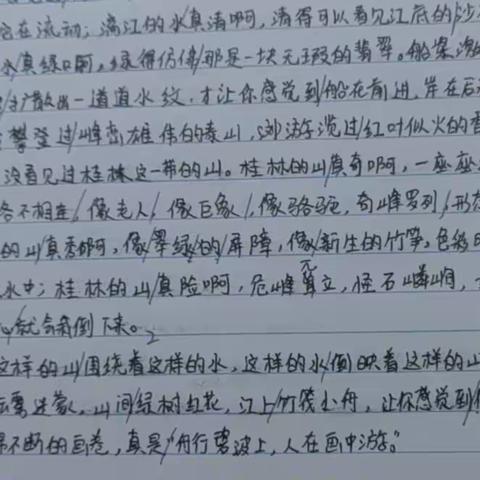 它在流动；漓江的水真清啊，清得可以看见江底的沙
水真绿啊，绿得仿佛那是一块无瑕的翡翠。船桨激
扩散出一道道水纹，才让你感觉到船在前进，岸在后
攀登过峰峦雄伟的泰山，游览过红叶似火的香
没看见过桂林这一带的山。桂林的山真奇啊，一座座
各不相连，像老人，像巨象，像骆驼，奇峰罗列，形态
的山真秀啊，像翠绿的屏障，像新生的竹笋，色彩
水中；桂林的山真险啊，危峰兀立，怪石嶙峋，
就会倒下来。
这样的山围绕着这样的水，这样的水倒映着这样的山
云雾迷蒙，山间绿树红花，江上竹筏小舟，让你感觉到
不断的画卷，真是"舟行碧波上，人在画中游。"